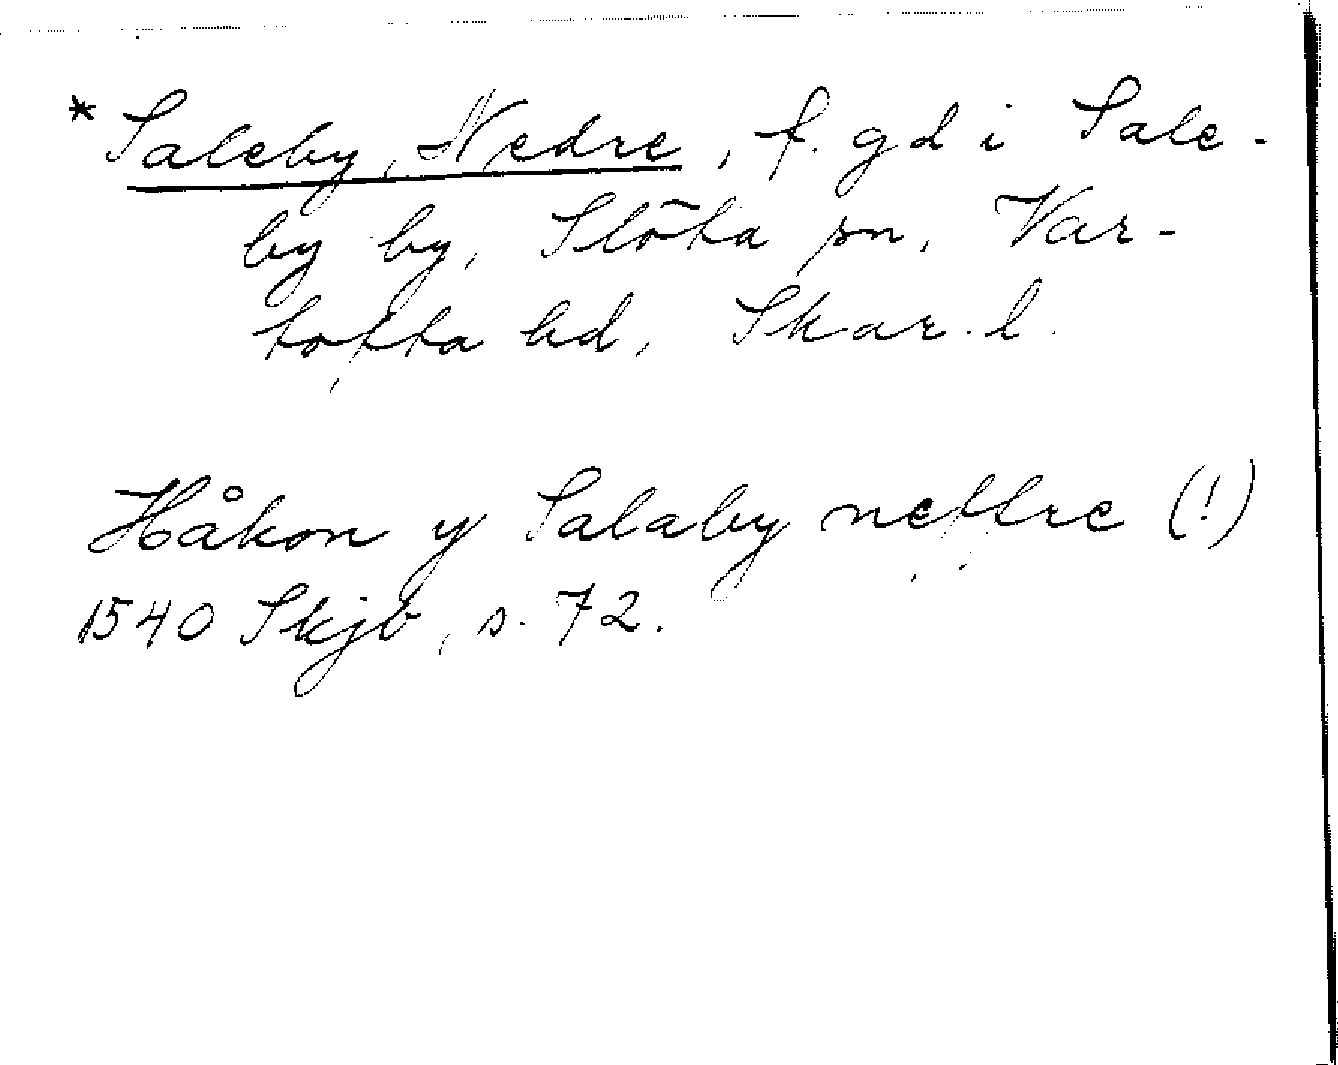 * Saleby, Nedre, f. gd i Sale-
by by, Slöta sn, Var-
tofta hd, Skar. l.
Håkon y Salaby nettre (!)
1540 Skjb, s. 72.